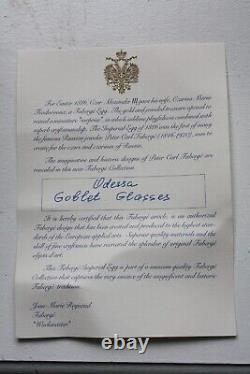 For Easter 1890, Czar Alexander III gave his wife, Czarina Marie
Feodorovna, a Fabergé Egg. The gold and jeweled treasure opened to
reveal miniature "surprise", in which sublime playfulness combined with
superb craftsmanship. The Imperial Egg of 1890 was the first of many
the famous Russian jeweler Peter Carl Fabergé (1846-1920), was to
create for the czars and czarinas of Russia.
The imaginative and historic designs of Peter Carl Fabergé are
revealed in this new Fabergé Collection.
Odessa
Goblet Glasses
It is hereby certified that this Fabergé article, is an authorized
Fabergé design that has been created and produced to the highest stan-
dards of the European applied arts. Superior quality materials and the
skill of fine craftsmen have recreated the splendor of original Fabergé
objets d'art.
This Fabergé Imperial Egg is part of a museum quality Fabergé
Collection that captures the very essence of the magnificent and historic
Fabergé tradition.
Jean-Marie
Fabergé
"Workmaster"